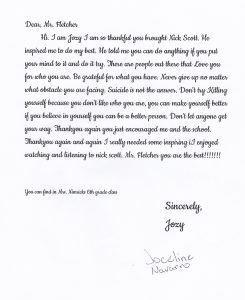 Dear, Mr. Fletcher
Hi. I am Jozy I am so thankful you brought Nick Scott. He
inspired me to do my best. He told me you can do anything if you put
your mind to it and do it try. There are people out there that Love you
for who you are. Be grateful for what you have. Never give up no matter
what obstacle you are facing. Suicide is not the answer. Don't try Killing
yourself because you don't like who you are, you can make yourself better
if you believe in yourself you can be a better person. Don't let anyone get
your way. Thankyou again you just encouraged me and the school.
Thankyou again and again I really needed some inspiring i enjoyed
watching and listening to nick scott. Mr. Fletcher you are the best!!!!!!!
You can find in Mrs. 6th grade class
Sincerely,
Jozy
Joceline
Navarro